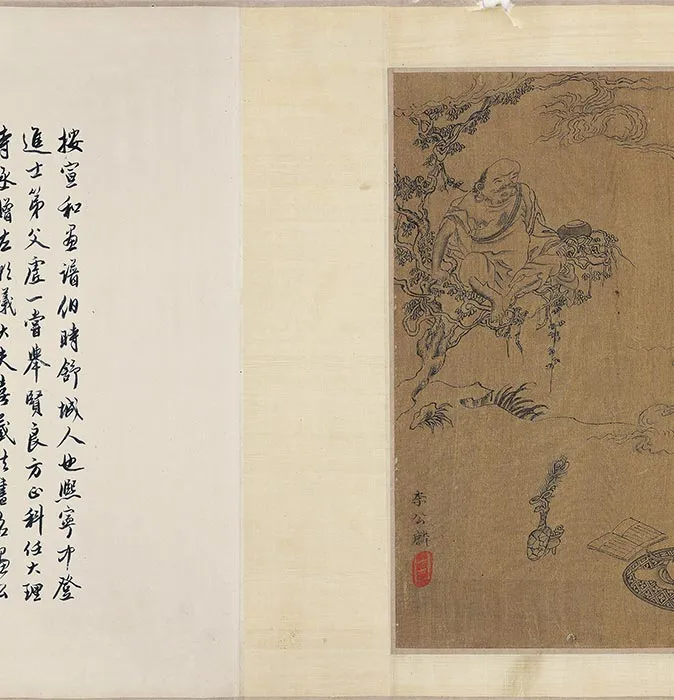 李公麟
按宣和畫譜伯時舒城人也熙寧中登
進士第父虛一嘗舉賢良方正科任大理
寺丞贈左朝議大夫喜藏法書名畫公